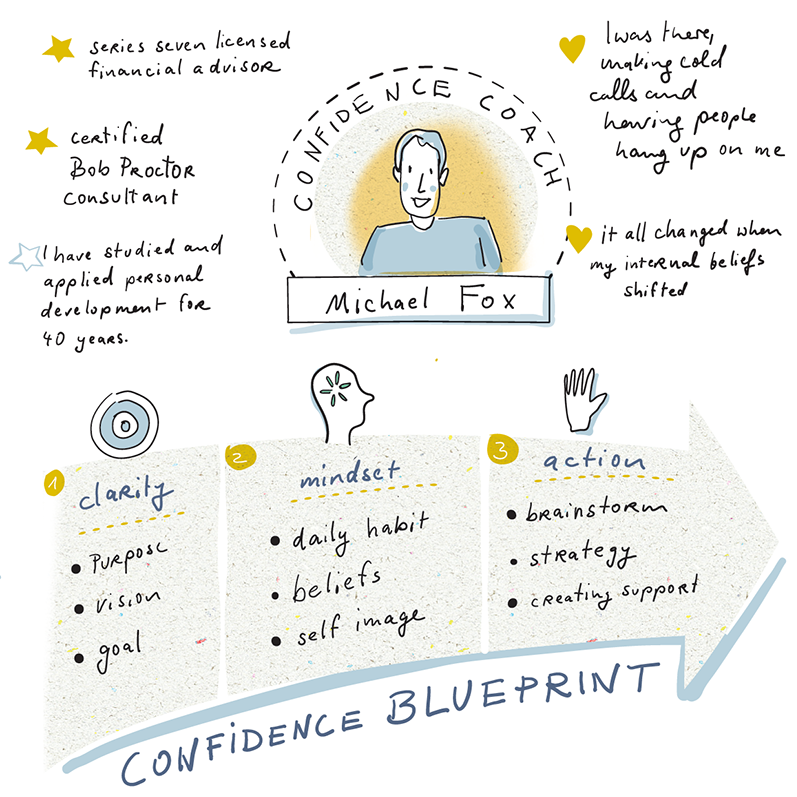 series seven licensed
financial advisor
certified
Bob Proctor
consultant
I have studied and
applied personal
development for
40 years.
CONFIDENCE COACH
Michael Fox
I was there,
making cold
calls and
having people
hang up on me
it all changed when
my internal beliefs
shifted
1
clarity
• Purpose
• vision
• goal
2
mindset
• daily habit
• beliefs
• self image
3
action
• brainstorm
• strategy
• creating support
CONFIDENCE BLUEPRINT